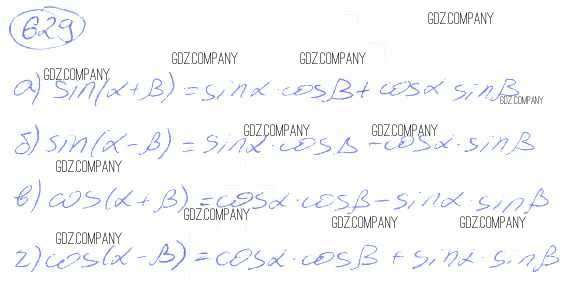 629
GDZ.COMPANY
GDZ.COMPANY GDZ.COMPANY
GDZ.COMPANY
а) sin(α+β) = sinα·cosβ + cosα sinβ
GDZ.COMPANY
GDZ.COMPANY GDZ.COMPANY
б) sin(α-β) = sinα·cosβ - cosα·sinβ
GDZ.COMPANY
в) cos(α+β) = cosα·cosβ - sinα·sinβ
GDZ.COMPANY GDZ.COMPANY GDZ.COMPANY
GDZ.COMPANY
г) cos(α-β) = cosα·cosβ + sinα·sinβ